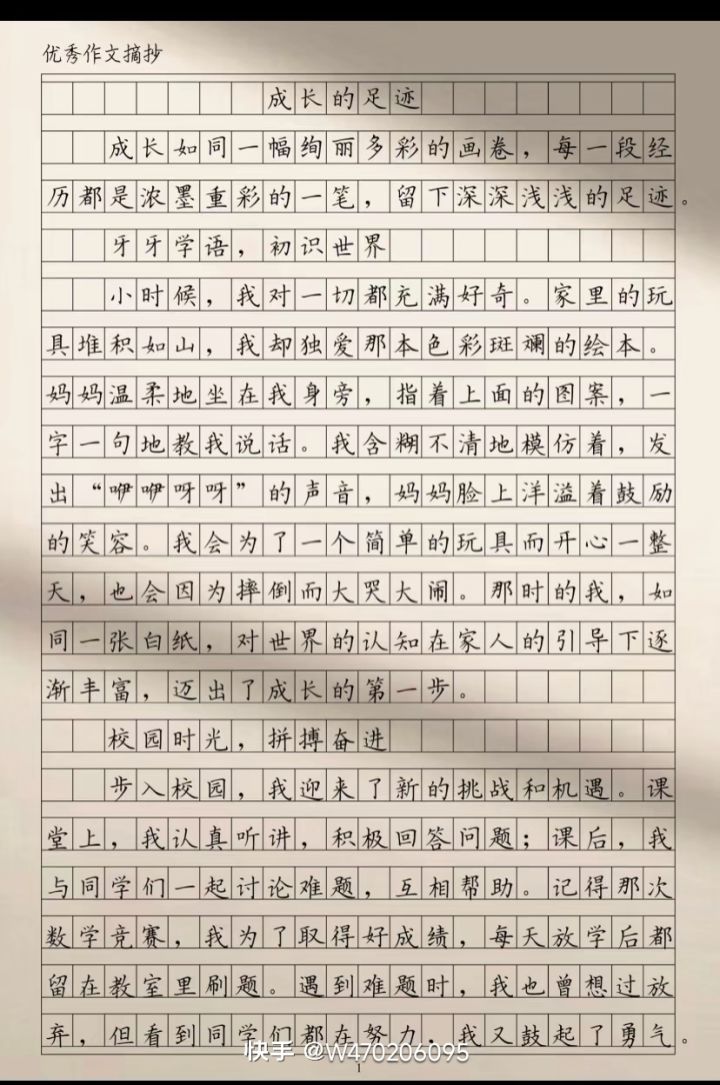 优秀作文摘抄
成长的足迹
成长如同一幅绚丽多彩的画卷，每一段经
历都是浓墨重彩的一笔，留下深深浅浅的足迹。
牙牙学语，初识世界
小时候，我对一切都充满好奇。家里的玩
具堆积如山，我却独爱那本色彩斑斓的绘本。
妈妈温柔地坐在我身旁，指着上面的图案，一
字一句地教我说话。我含糊不清地模仿着，发
出“咿咿呀呀”的声音，妈妈脸上洋溢着鼓励
的笑容。我会为了一个简单的玩具而开心一整
天，也会因为摔倒而大哭大闹。那时的我，如
同一张白纸，对世界的认知在家人的引导下逐
渐丰富，迈出了成长的第一步。
校园时光，拼搏奋进
步入校园，我迎来了新的挑战和机遇。课
堂上，我认真听讲，积极回答问题；课后，我
与同学们一起讨论难题，互相帮助。记得那次
数学竞赛，我为了取得好成绩，每天放学后都
留在教室里刷题。遇到难题时，我也曾想过放
弃，但看到同学们都在努力，我又鼓起了勇气。
快手 @W470206095
1